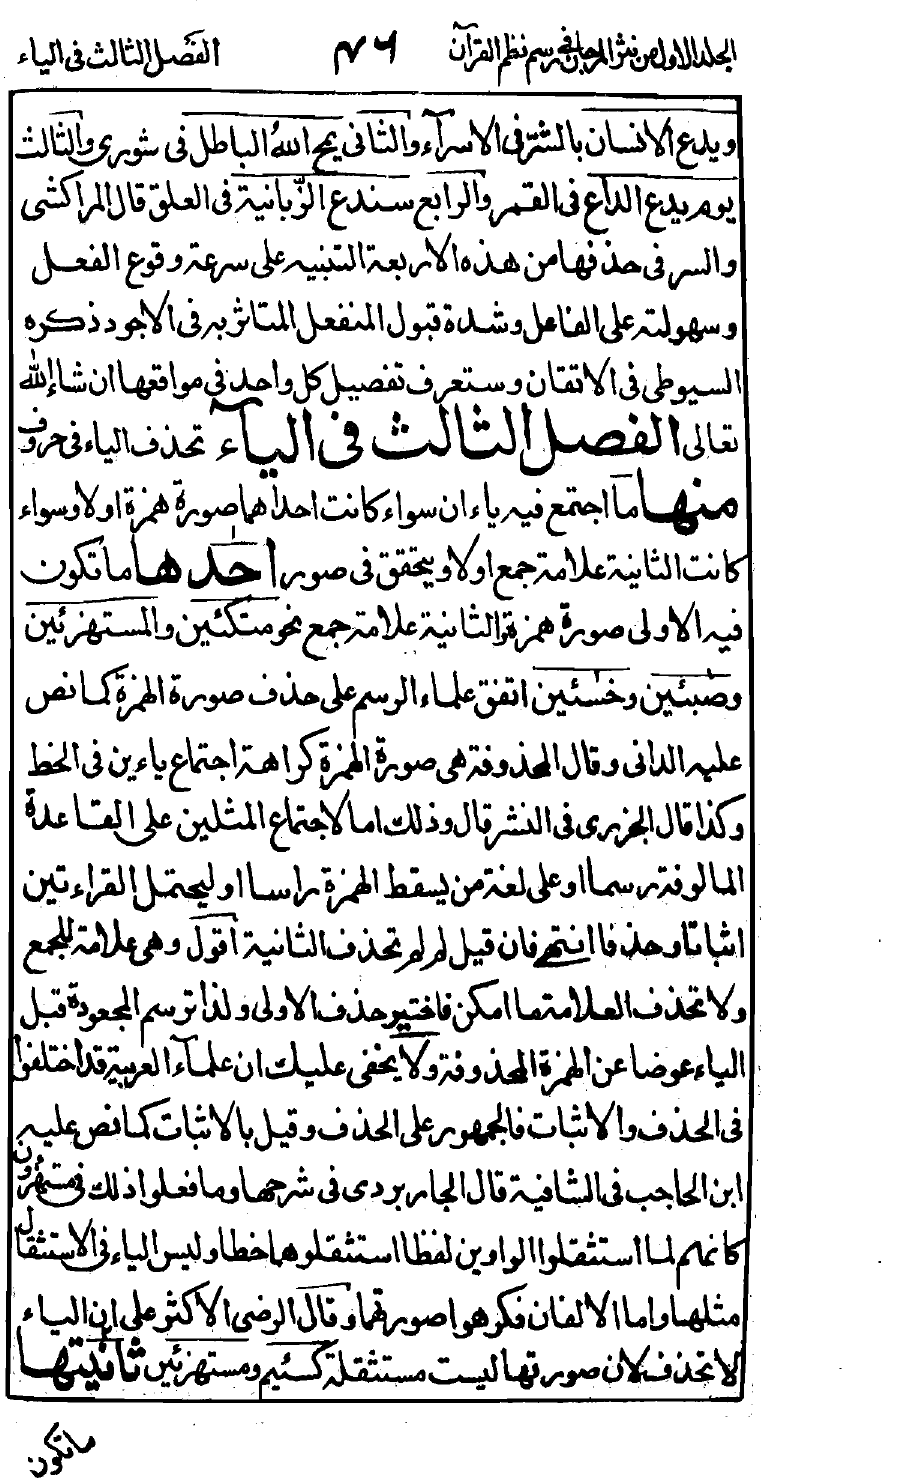 الجلد الاول من نثر المرجان في رسم نظم القرآن
٧٦
الفصل الثالث في الياء
ويدع الانسان بالشر في الاسرآء والثاني يمح الله الباطل في شورى والثالث
يوم يدع الداع في القمر والرابع سندع الزبانية في العلق قال المراكشي
والسر في حذفها من هذه الاربعة التنبيه على سرعة وقوع الفعل
وسهولته على الفاعل وشدة قبول المنفعل المتاثر به في الاجود ذكره
السيوطي في الاتقان وستعرف تفصيل كل واحد في مواقعها ان شاء الله
تعالى الفصل الثالث في اليآء تحذف الياء في حروف
منها ما اجتمع فيه ياءان سواء كانت احداهما صورة همزة اولا وسواء
كانت الثانية علامة جمع اولا ويتحقق في صور احدها ما تكون
فيه الاولى صورة همزة والثانية علامة جمع نحو متكئين والمستهزئين
وصبئين وخسئين اتفق علماء الرسم على حذف صورة الهمزة كما نص
عليه الداني وقال المحذوفة هي صورة الهمزة كراهة اجتماع ياءين في الخط
وكذا قال الجزري في النشر قال وذلك اما لاجتماع المثلين على القاعدة
المالوفة رسما او على لغة من يسقط الهمزة راسا او ليحتمل القراءتين
اثباتا وحذفا انتهى فان قيل لم لم تحذف الثانية اقول وهي علامة للجمع
ولا تحذف العلامة ما امكن فاختير حذف الاولى ولذا ترسم المجعودة قبل
الياء عوضا عن الهمزة المحذوفة ولا يخفى عليك ان علمآء العربية قد اختلفوا
في الحذف والاثبات فالجمهور على الحذف وقيل بالاثبات كما نص عليه
ابن الحاجب في الشافية قال الجاربردي في شرحها وما فعلوا ذلك في مستهزؤن
كانهم لما استثقلوا الواوين لفظا استثقلوهما خطا وليس الياء في الاستثقال
مثلها واما الالفان فكرهوا صورتهما وقال الرضي الاكثر على ان الياء
لا تحذف لان صورتها ليست مستثقلة كسئيم ومستهزئين ثانيتها
ما تكون